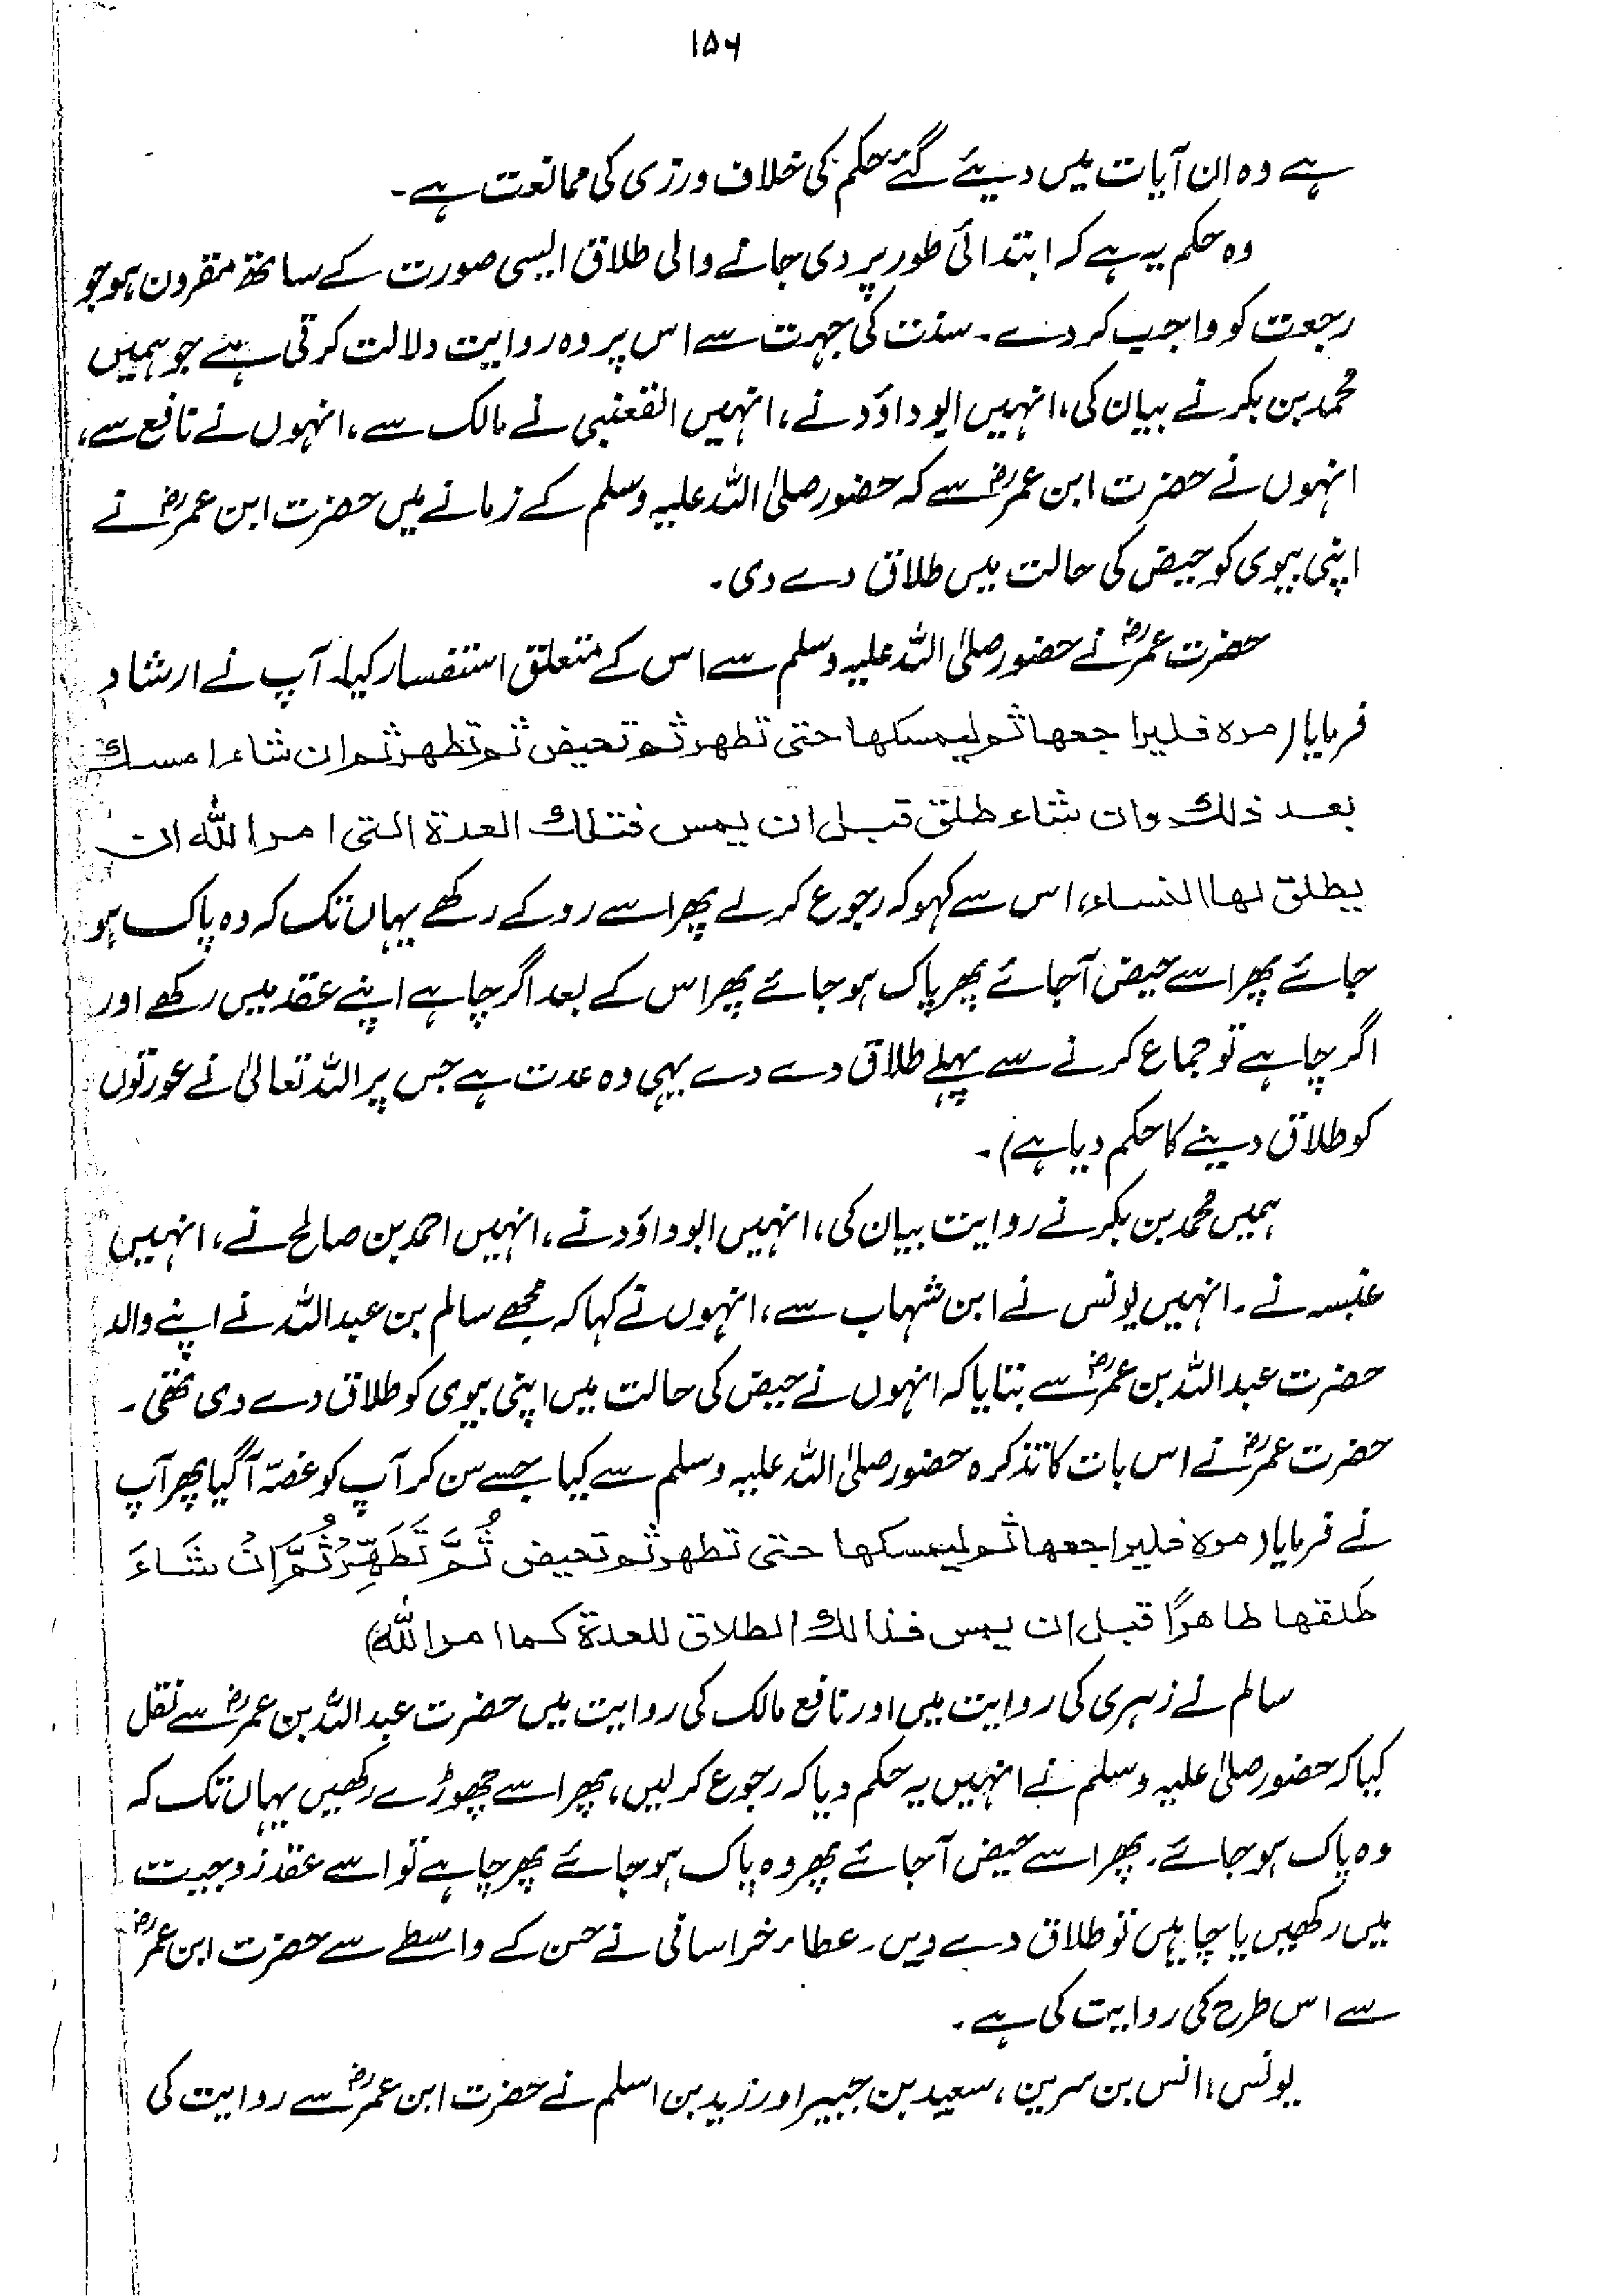 ۱۵۶
ہے وہ ان آیات میں دیئے گئے حکم کی خلاف ورزی کی ممانعت ہے۔
وہ حکم یہ ہے کہ ابتدائی طور پر دی جانے والی طلاق ایسی صورت کے ساتھ مقرون ہو جو
رجعت کو واجب کر دے۔ سنت کی جہت سے اس پر وہ روایت دلالت کرتی ہے جو ہمیں
محمد بن بکر نے بیان کی، انہیں ابو داؤد نے، انہیں القعنبی نے مالک سے، انہوں نے نافع سے،
انہوں نے حضرت ابن عمرؓ سے کہ حضور صلی اللہ علیہ وسلم کے زمانے میں حضرت ابن عمرؓ نے
اپنی بیوی کو حیض کی حالت میں طلاق دے دی۔
حضرت عمرؓ نے حضور صلی اللہ علیہ وسلم سے اس کے متعلق استفسار کیا۔ آپ نے ارشاد
فرمایا (مرہ فلیراجعھا ثم لیمسکھا حتی تطھر ثم تحیض ثم تطھر ثم ان شاء امسک
بعد ذلک وان شاء طلق قبل ان یمس فتلک العدۃ التی امر اللہ ان
یطلق لھا النساء، اس سے کہو کہ رجوع کر لے پھر اسے روکے رکھے یہاں تک کہ وہ پاک ہو
جائے پھر اسے حیض آجائے پھر پاک ہو جائے پھر اس کے بعد اگر چاہے اپنے عقد میں رکھے اور
اگر چاہے تو جماع کرنے سے پہلے طلاق دے دے یہی وہ عدت ہے جس پر اللہ تعالیٰ نے عورتوں
کو طلاق دینے کا حکم دیا ہے)۔
ہمیں محمد بن بکر نے روایت بیان کی، انہیں ابو داؤد نے، انہیں احمد بن صالح نے، انہیں
عنبسہ نے۔ انہیں یونس نے ابن شہاب سے، انہوں نے کہا کہ مجھے سالم بن عبداللہ نے اپنے والد
حضرت عبداللہ بن عمرؓ سے بتایا کہ انہوں نے حیض کی حالت میں اپنی بیوی کو طلاق دے دی تھی۔
حضرت عمرؓ نے اس بات کا تذکرہ حضور صلی اللہ علیہ وسلم سے کیا جسے سن کر آپ کو غصّہ آگیا پھر آپ
نے فرمایا (مرہ فلیراجعھا ثم لیمسکھا حتی تطھر ثم تحیض ثُمَّ تَطَهِّرْ ثُمَّ اِنْ شَاءَ
طلقھا طاھرًا قبل ان یمس فذالک الطلاق للعدۃ کما امر اللہ)
سالم نے زہری کی روایت میں اور نافع مالک کی روایت میں حضرت عبداللہ بن عمرؓ سے نقل
کیا کہ حضور صلی علیہ وسلم نے انہیں یہ حکم دیا کہ رجوع کر لیں، پھر اسے چھوڑے رکھیں یہاں تک کہ
وہ پاک ہو جائے۔ پھر اسے حیض آجائے پھر وہ پاک ہو جائے پھر چاہے تو اسے عقد زوجیت
میں رکھیں یا چاہیں تو طلاق دے دیں۔ عطاء خراسانی نے حسن کے واسطے سے حضرت ابن عمرؓ
سے اس طرح کی روایت کی ہے۔
یونس، انس بن سرین، سعید بن جبیر اور زید بن اسلم نے حضرت ابن عمرؓ سے روایت کی